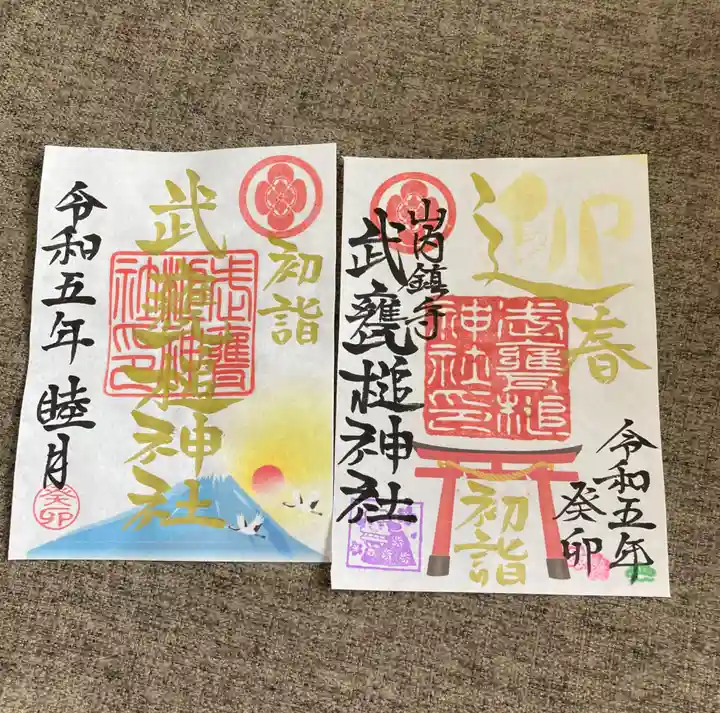 初詣
武甕槌神社
武甕槌神社印
令和五年 睦月
癸卯
迎春
山内鎮守
武甕槌神社
武甕槌神社印
初詣
令和五年
癸卯